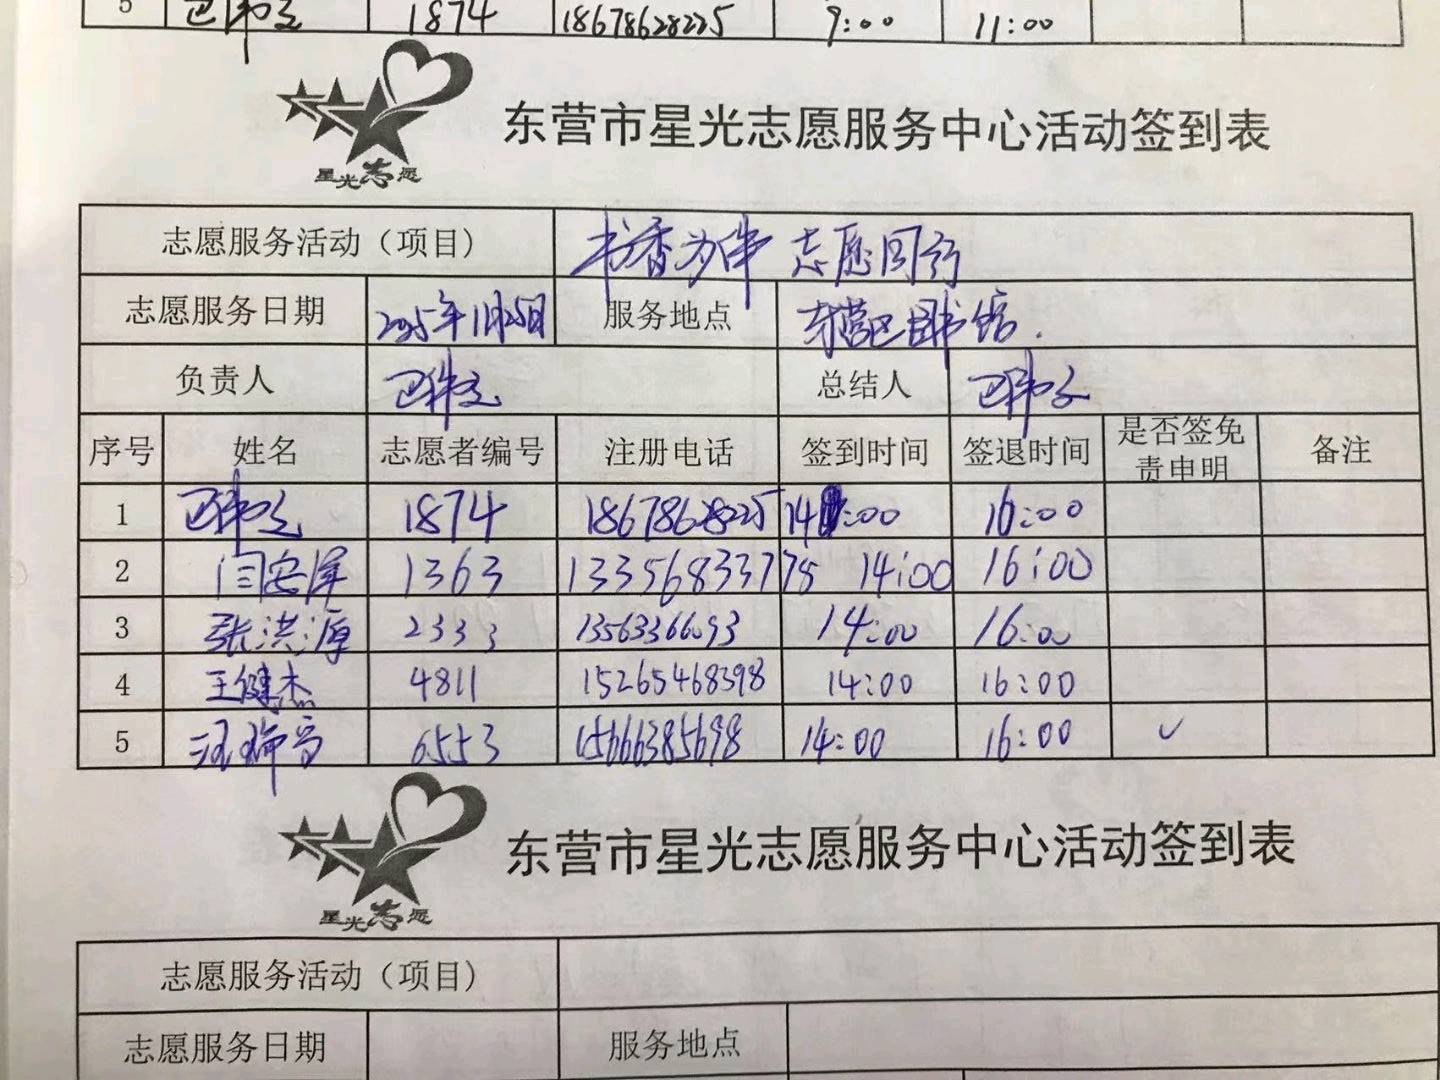 5 卫伟之 1874 18678628225 9:00 11:00
星光志愿
东营市星光志愿服务中心活动签到表
志愿服务活动（项目） 书香为伴 志愿同行
志愿服务日期 2025年1月25日 服务地点 东营区图书馆.
负责人 总结人
序号 姓名 志愿者编号 注册电话 签到时间 签退时间 是否签免责申明 备注
1 1874 18678628225 14:00 16:00
2 闫安泽 1363 13356833778 14:00 16:00
3 张洪源 2333 13563366093 14:00 16:00
4 王健杰 4811 15265468398 14:00 16:00
5 6553 15666385698 14:00 16:00 ✓
星光志愿
东营市星光志愿服务中心活动签到表
志愿服务活动（项目）
志愿服务日期 服务地点